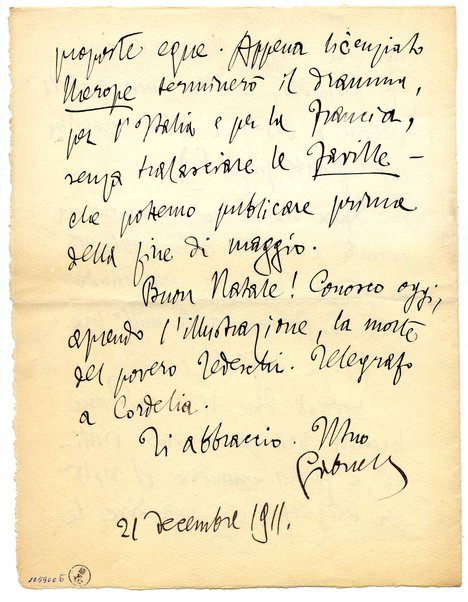 proposte eque. Appena licenziato
Merope terminerò il dramma,
per l'Italia e per la Francia,
senza tralasciare le Faville –
che potremo publicare prima
della fine di maggio.
Buon Natale! Conosco oggi,
aprendo l'illustrazione, la morte
del povero Tedeschi. Telegrafo
a Cordelia.
Ti abbraccio. Il tuo
Gabriele
21 decembre 1911.
105900 6